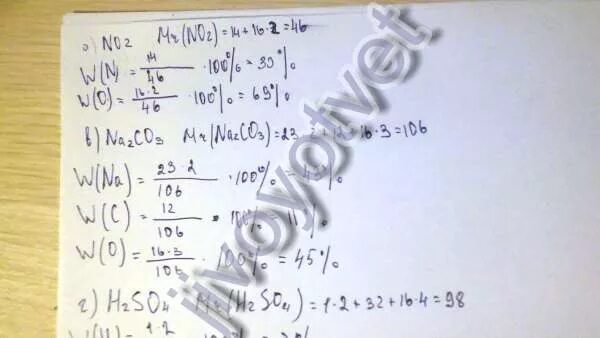 а) NO2 Mr(NO2)=14+16·2=46
W(N) = 14/46 ·100% = 39%
W(O) = 16·2/46 ·100% = 69%
в) Na2CO3 Mr(Na2CO3)=23·2+12+16·3=106
W(Na) = 23·2/106 ·100% = 43%
W(C) = 12/106 · 100% = 11%
W(O) = 16·3/106 · 100% = 45%
г) H2SO4 Mr(H2SO4) = 1·2+32+16·4=98
1·2
jivoyotvet